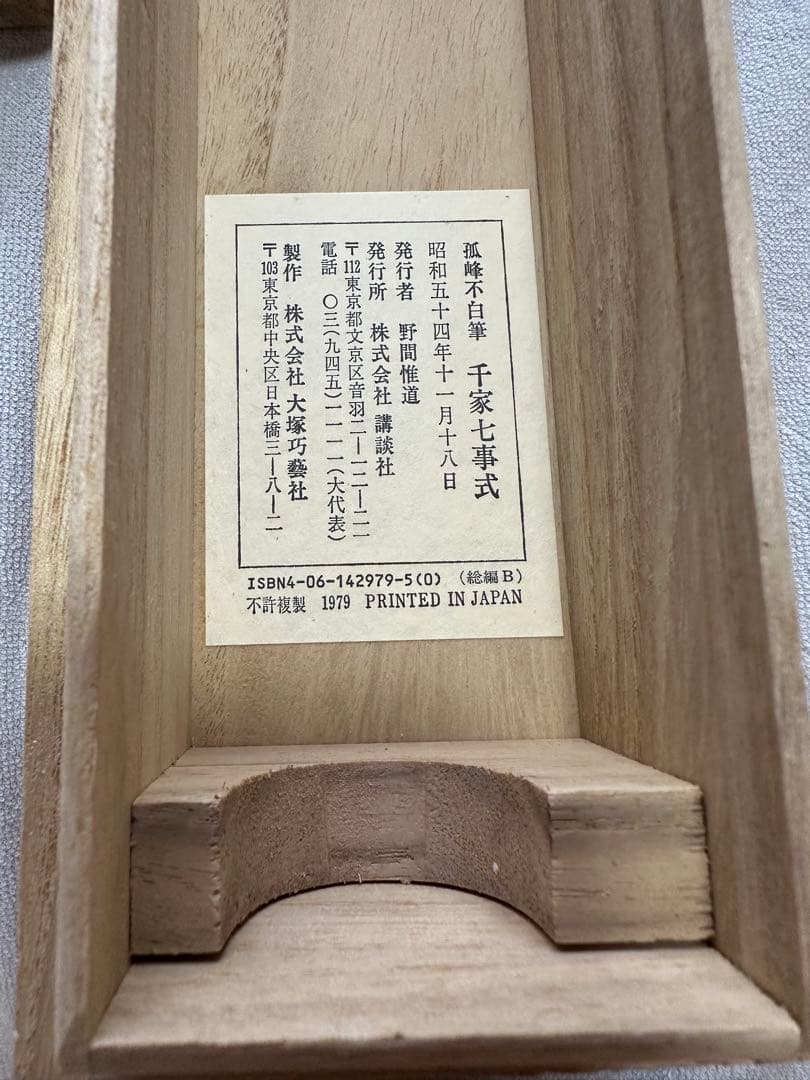 孤峰不白筆 千家七事式
昭和五十四年十一月十八日
発行者 野間惟道
発行所 株式会社 講談社
〒112東京都文京区音羽二―一二―二一
電話 〇三(九四五)一一一一(大代表)
製作 株式会社 大塚巧藝社
〒103東京都中央区日本橋三―八―二
ISBN4-06-142979-5(0) (総編B)
不許複製 1979 PRINTED IN JAPAN